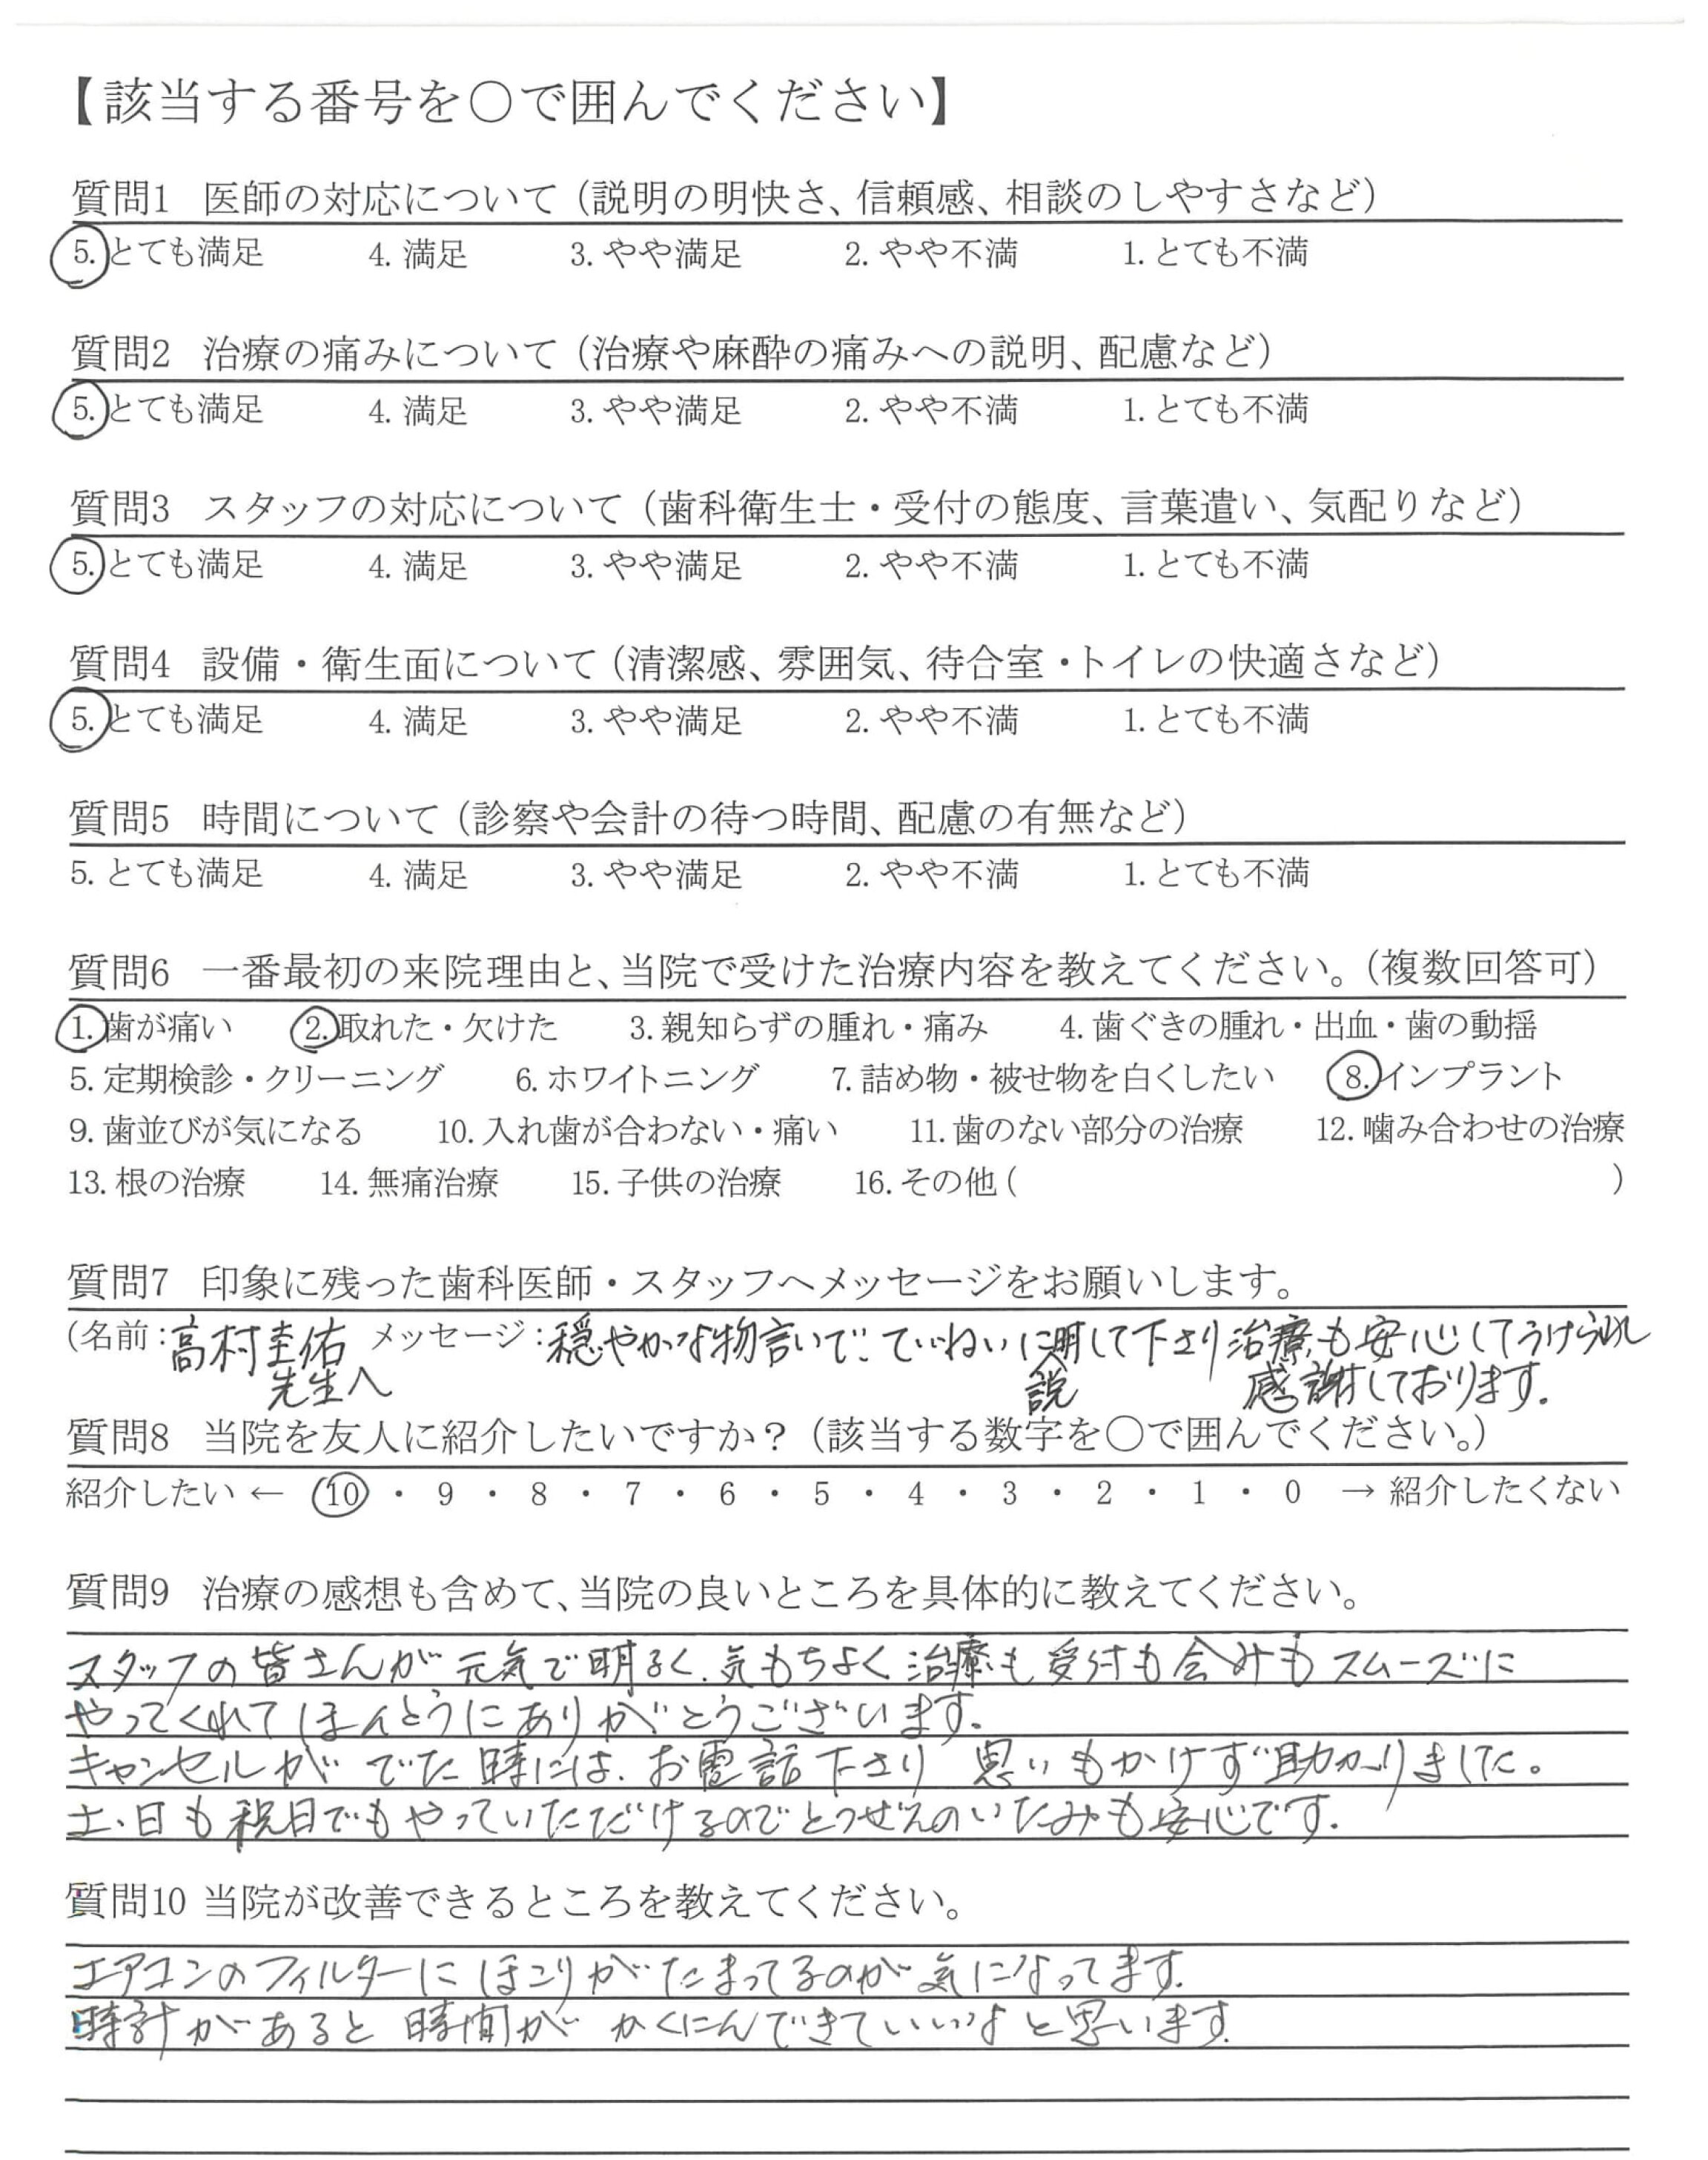 【該当する番号を○で囲んでください】
質問1 医師の対応について（説明の明快さ、信頼感、相談のしやすさなど）
5. とても満足 4. 満足 3. やや満足 2. やや不満 1. とても不満
質問2 治療の痛みについて（治療や麻酔の痛みへの説明、配慮など）
5. とても満足 4. 満足 3. やや満足 2. やや不満 1. とても不満
質問3 スタッフの対応について（歯科衛生士・受付の態度、言葉遣い、気配りなど）
5. とても満足 4. 満足 3. やや満足 2. やや不満 1. とても不満
質問4 設備・衛生面について（清潔感、雰囲気、待合室・トイレの快適さなど）
5. とても満足 4. 満足 3. やや満足 2. やや不満 1. とても不満
質問5 時間について（診察や会計の待つ時間、配慮の有無など）
5. とても満足 4. 満足 3. やや満足 2. やや不満 1. とても不満
質問6 一番最初の来院理由と、当院で受けた治療内容を教えてください。（複数回答可）
1. 歯が痛い 2. 取れた・欠けた 3. 親知らずの腫れ・痛み 4. 歯ぐきの腫れ・出血・歯の動揺
5. 定期検診・クリーニング 6. ホワイトニング 7. 詰め物・被せ物を白くしたい 8. インプラント
9. 歯並びが気になる 10. 入れ歯が合わない・痛い 11. 歯のない部分の治療 12. 噛み合わせの治療
13. 根の治療 14. 無痛治療 15. 子供の治療 16. その他（ ）
質問7 印象に残った歯科医師・スタッフへメッセージをお願いします。
（名前：高村圭佑 メッセージ：穏やかな物言いで、ていねいに説明して下さり治療も安心してうけられ
先生へ 感謝しております。
質問8 当院を友人に紹介したいですか？（該当する数字を○で囲んでください。）
紹介したい ← 10 ・ 9 ・ 8 ・ 7 ・ 6 ・ 5 ・ 4 ・ 3 ・ 2 ・ 1 ・ 0 → 紹介したくない
質問9 治療の感想も含めて、当院の良いところを具体的に教えてください。
スタッフの皆さんが元気で明るく、気もちよく治療も受付も会計もスムーズに
やってくれてほんとうにありがとうございます。
キャンセルがでた時には、お電話下さり 思いもかけず助かりました。
土、日も祝日でもやっていただけるのでとつぜんのいたみも安心です。
質問10 当院が改善できるところを教えてください。
エアコンのフィルターにほこりがたまってるのが気になってます。
時計があると時間がかくにんできていいなと思います。